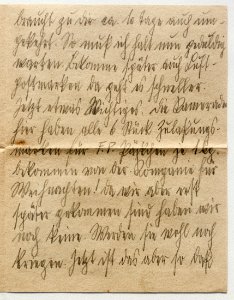 braucht zu dir ca. 10 tage auch um-
gekehrt. So muß ich halt nun geduldig
warten. Bekomme später auch Luft-
postmarken da geht es schneller.
Jetzt etwas Wichtiges. Die Kameraden
hier haben alle 2 Stück Zulassungs-
marken für F.P. Päckchen je 1 kg
bekommen von der Companie für
Weihnachten! Da wir aber erst
später gekommen sind haben wir
noch keine. Werden sie wohl noch
kriegen. Jetzt ist das aber so, daß